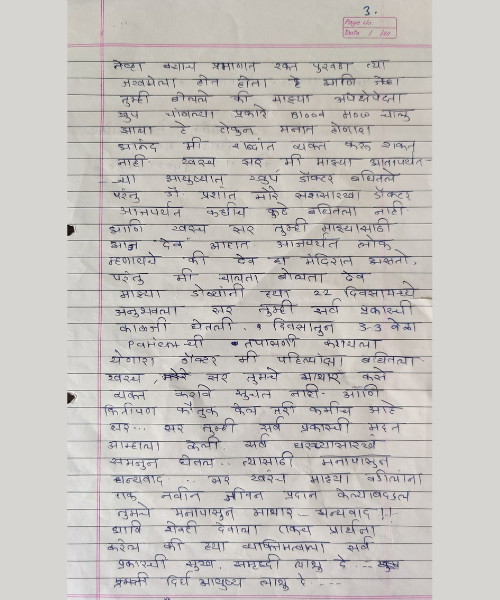 3.
Page No.
Date / /20
तेव्हा बऱ्याच प्रमाणात रक्त पुरवठा त्या
जखमेला होत होता हे आणि जेव्हा
तुम्ही बोलले की माझ्या अपेक्षेपेक्षा
खुप चांगल्या प्रकारे Blood flow चालू
झाला हे ऐकून मनात होणारा
आनंद मी शब्दांत व्यक्त करू शकत
नाही. खरंच सर मी माझ्या आतापर्यंत-
च्या आयुष्यात खुप डॉक्टर बघितले
परंतु डॉ प्रशांत मोरे सरांसारखा डॉक्टर
आजपर्यंत कधीच कुठे बघितला नाही.
आणि खरंच सर तुम्ही माझ्यासाठी
आज देव आहात. आजपर्यंत लोक
म्हणायचे की देव हा मंदिरात असतो.
परंतु मी चालता बोलता देव
माझ्या डोळ्यांनी ह्या 22 दिवसामध्ये
अनुभवला सर तुम्ही सर्व प्रकारची
काळजी घेतली. दिवसातुन 3-3 वेळा
Patient ची तपासणी करायला
येणारा डॉक्टर मी पहिल्यांदा बघितला
खरंच, सर तुमचे आभार कसे
व्यक्त करावे सुचत नाही. आणि
कितीपण कौतुक केलं तरी कमीच आहे
सर... सर तुम्ही सर्व प्रकारची मदत
आम्हाला केली. सर्व घरच्यासारखं
समजुन घेतलं.. त्यासाठी मनापासुन
धन्यवाद ... सर खरंच माझ्या वडीलांना
एक नवीन जीवन प्रदान केल्याबद्दल
तुमचे मनापासुन आभार - धन्यवाद !!
आणि शेवटी देवाला एकच प्रार्थना
करेल की ह्या व्यक्तिमत्वाला सर्व
प्रकारची सुख, समृध्दी लाभू दे ...
प्रगती दिर्घ आयुष्य लाभू दे ....